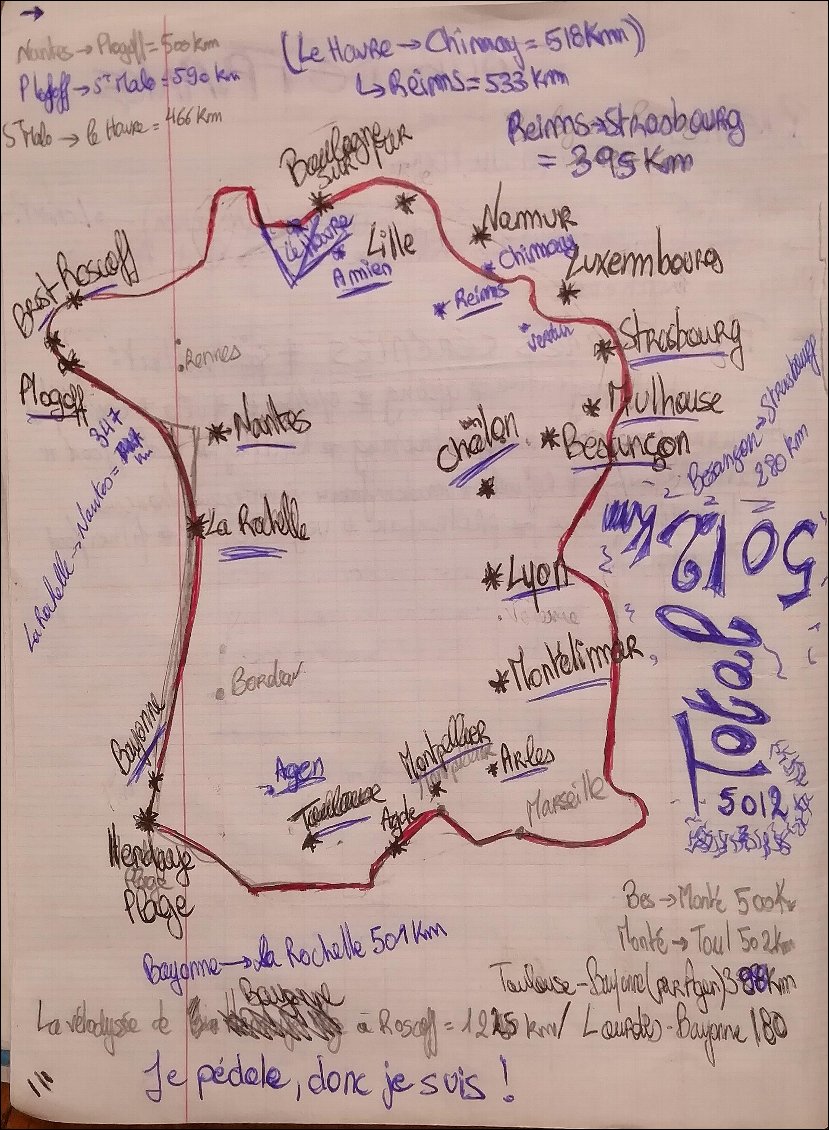 Nantes → Plogoff = 500 km
Plogoff → St Malo = 590 km
St Malo → le Havre = 466 km
(Le Havre → Chimay = 518 Km)
↳ Reims = 533 km
Reims → Strasbourg
= 395 Km
Boulogne
SUR
MER
Le Havre
Lille
Amien
Namur
Chimay
Luxembourg
Reims
Verdun
Brest
Roscoff
Plogoff
Rennes
Strasbourg
Mulhouse
Nantes
Châlon
Besançon
La Rochelle → Nantes = 347
Besançon → Strasbourg
280 km
La Rochelle
5012 Km
Lyon
Total
Montélimar
Bordeau
Bayonne
Agen
Montpellier
Arles
Toulouse
Agde
Marseille
5012
Hendaye
Plage
Plage
Bes → Monté 500 Km
Monté → Toul 502 km
Bayonne → La Rochelle 501 Km
Toulouse - Bayonne (par Agen) 398 Km
Bayonne
La vélodyssée de à Roscoff = 1225 km / Lourdes - Bayonne 180
Je pédale, donc je suis !